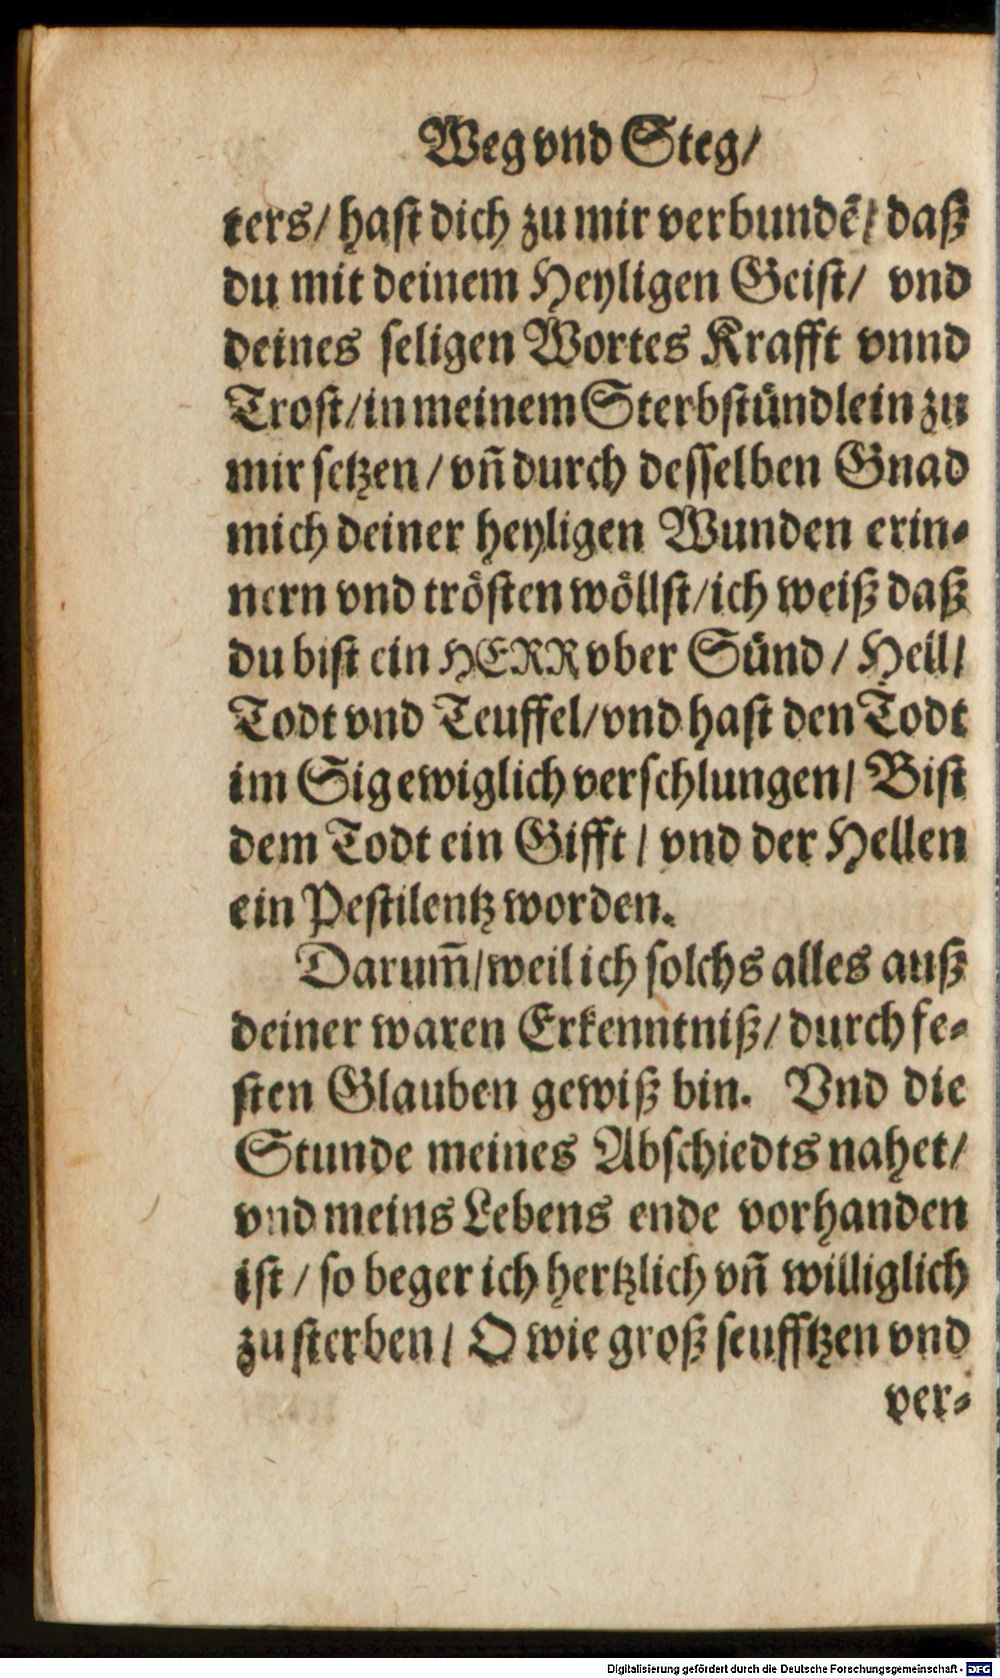 Weg vnd Steg/
ters/ hast dich zu mir verbundē/ daß
du mit deinem Heyligen Geist/ vnd
deines seligen Wortes Krafft vnnd
Trost/ in meinem Sterbstündlein zu
mir setzen/ vn̄ durch desselben Gnad
mich deiner heyligen Wunden erin-
nern vnd trösten wöllst/ ich weiß daß
du bist ein HERR vber Sünd/ Hell/
Todt vnd Teuffel/ vnd hast den Todt
im Sig ewiglich verschlungen/ Bist
dem Todt ein Gifft/ vnd der Hellen
ein Pestilentz worden.
Darum̄/ weil ich solchs alles auß
deiner waren Erkenntniß/ durch fe-
sten Glauben gewiß bin. Vnd die
Stunde meines Abschiedts nahet/
vnd meins Lebens ende vorhanden
ist/ so beger ich hertzlich vn̄ williglich
zu sterben/ O wie groß seufftzen vnd
ver-
Digitalisierung gefördert durch die Deutsche Forschungsgemeinschaft - DFG